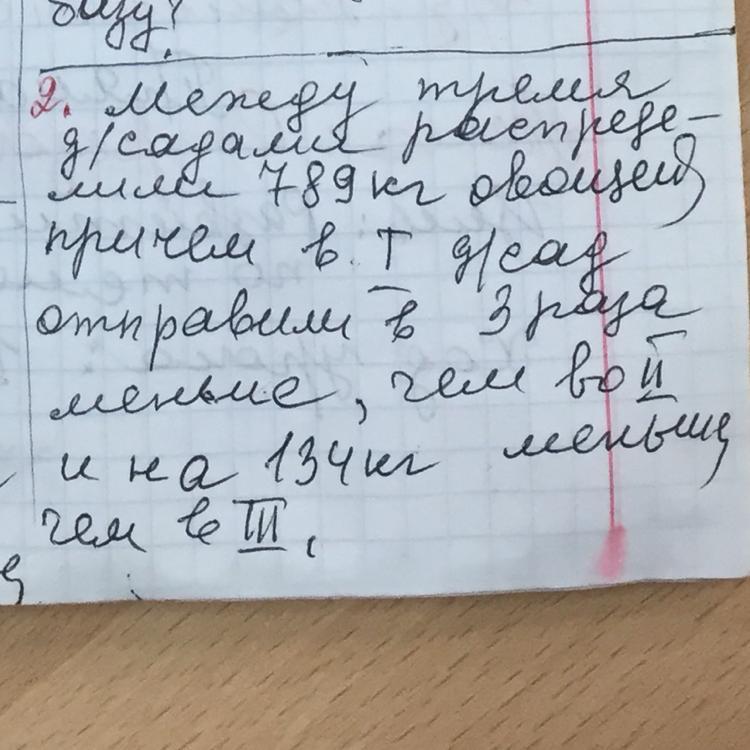 базу?
2. Между тремя
д/садами распреде-
лили 789 кг овощей,
причем в I д/сад
отправили в 3 раза
меньше, чем во II
и на 134 кг меньше,
чем в III.